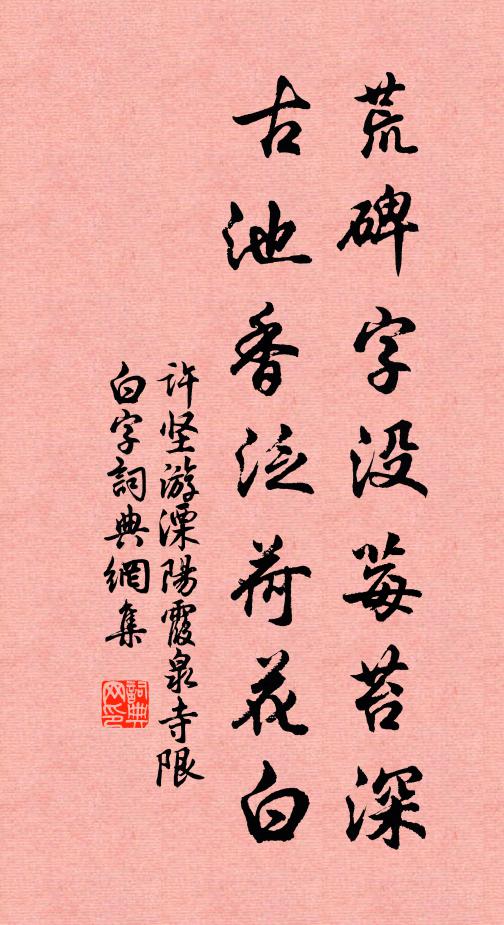 荒碑字没莓苔深
古池香泛荷花白
许坚游溧陽霞泉寺限
白字詞典網集
詞典
网印